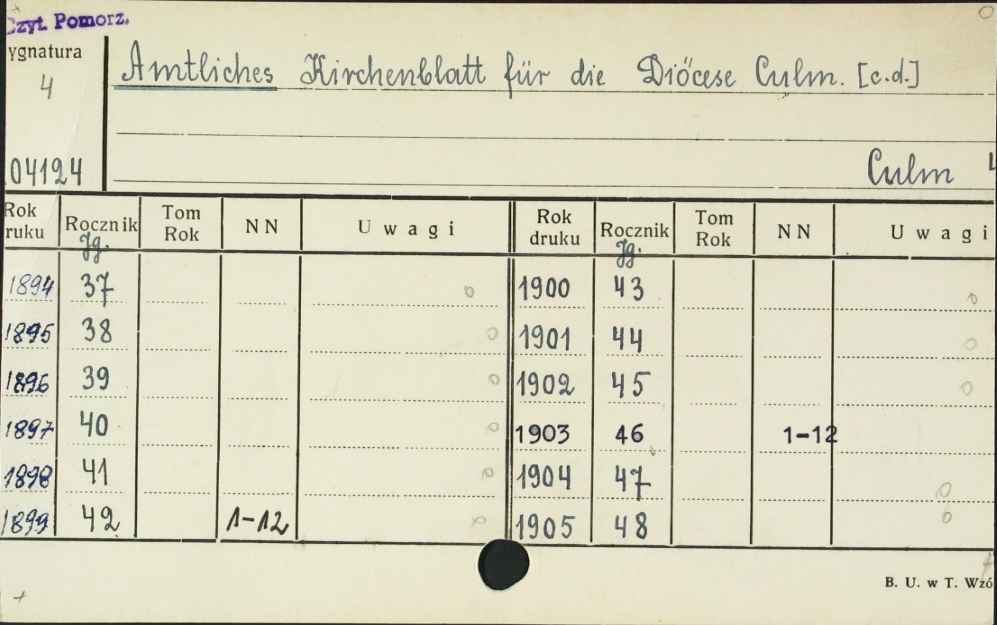 Czyt. Pomorz.
ygnatura
4
04124
Amtliches Kirchenblatt für die Diöcese Culm. [c.d.]
Culm 4
Rok ruku Rocznik Jg. Tom Rok NN Uwagi Rok druku Rocznik Jg. Tom Rok NN Uwagi
1894 37 o 1900 43 o
1895 38 o 1901 44 o
1896 39 o 1902 45 o
1897 40 o 1903 46 1-12
1898 41 o 1904 47 o
1899 42 1-12 1905 48 o
B. U. w T. Wzó